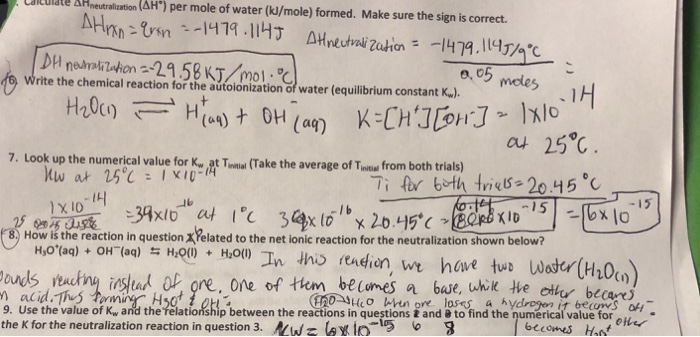 Calculate ΔHneutralization (ΔH°) per mole of water (kJ/mole) formed. Make sure the sign is correct.
ΔHrxn = qrxn = -1479.114J
ΔHneutralization = -1479.114J/g°C
0.05 moles
=
ΔH neutralization = -29.58 KJ/mol·°C
6. Write the chemical reaction for the autoionization of water (equilibrium constant Kw).
H2O(l) ⇌ H+(aq) + OH-(aq) K=[H+][OH-] = 1x10-14
at 25°C.
7. Look up the numerical value for Kw at Tinitial (Take the average of Tinitial from both trials)
Kw at 25°C = 1x10-14
Ti for both trials = 20.45°C
1x10-14
25
= x10-16 at 1°C x10-16 x 20.45°C = x10-15 = 6x10-15
8. How is the reaction in question related to the net ionic reaction for the neutralization shown below?
H3O+(aq) + OH-(aq) ⇆ H2O(l) + H2O(l)
In this reaction, we have two water (H2O(l))
reacting instead of one. One of them becomes a base, while the other becomes
acid. Thus forming H3O+ & OH-.
when one loses a hydrogen it becomes OH-
other
becomes
9. Use the value of Kw, and the relationship between the reactions in questions and to find the numerical value for
6 8
the K for the neutralization reaction in question 3.
Kw = 6x10-15